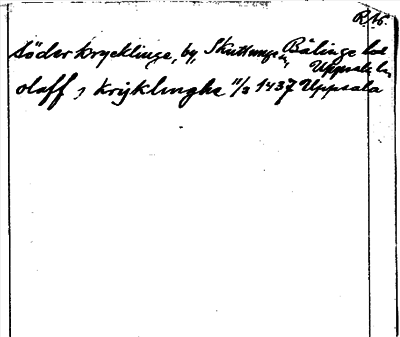 R. 16.
Söderkrycklinge, by, Skuttunge sn, Bälinge hd
Uppsala län
olaff j krijklinghe 11/3 1437 Uppsala